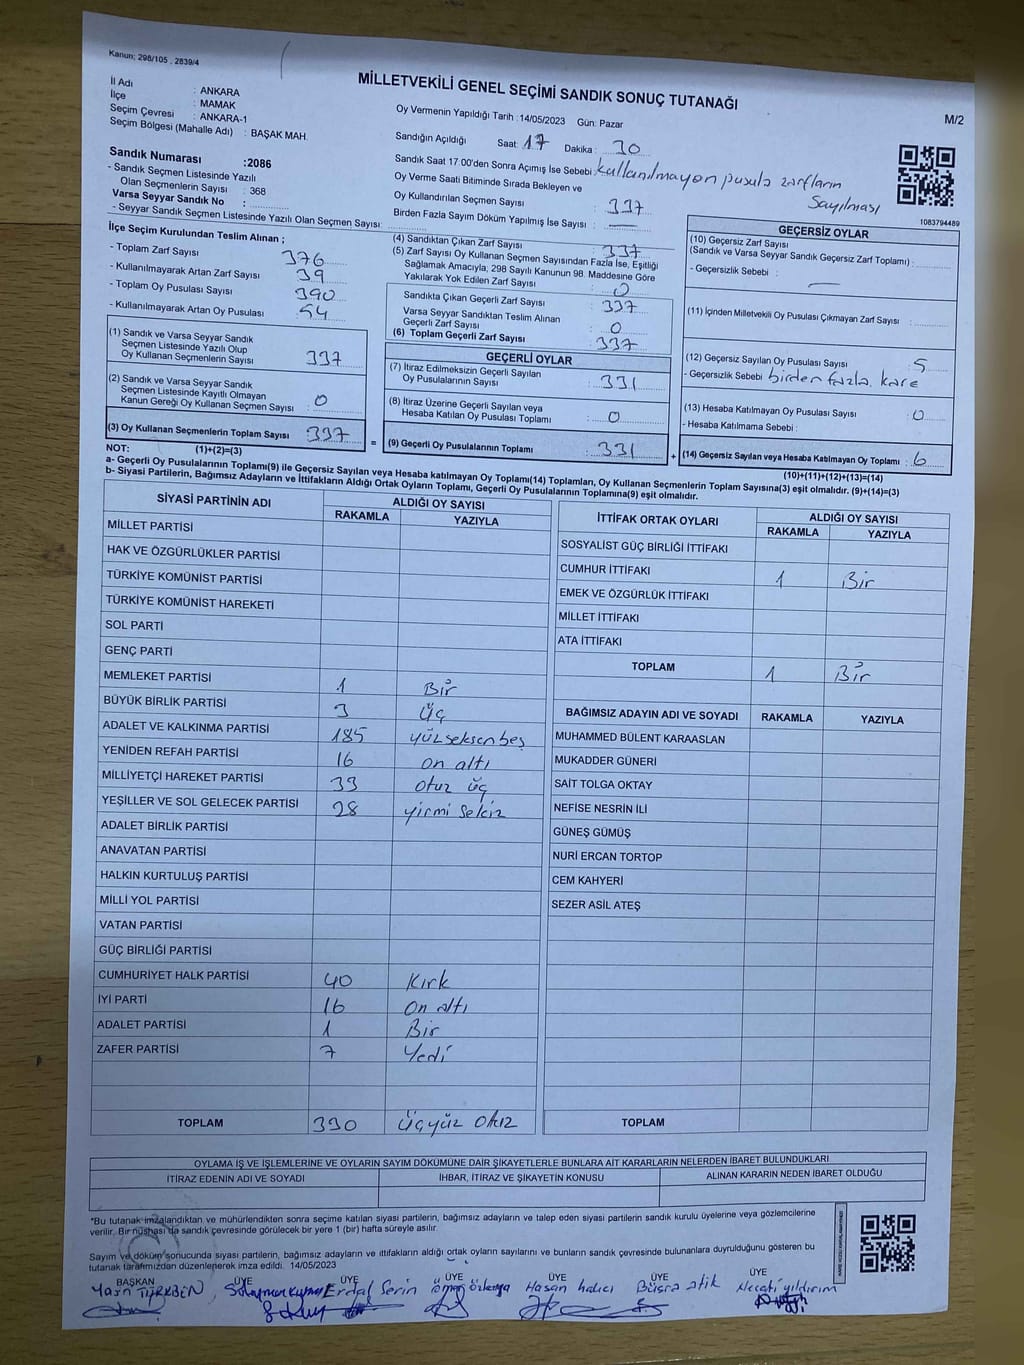 Kanun; 298/105 , 2839/4
MİLLETVEKİLİ GENEL SEÇİMİ SANDIK SONUÇ TUTANAĞI
M/2
İl Adı : ANKARA
İlçe : MAMAK
Seçim Çevresi : ANKARA-1
Seçim Bölgesi (Mahalle Adı) : BAŞAK MAH.
Oy Vermenin Yapıldığı Tarih :14/05/2023 Gün: Pazar
Sandığın Açıldığı Saat: 17 Dakika: 30
Sandık Saat 17:00'den Sonra Açımış İse Sebebi: Kullanılmayan pusula zarfların Sayılması
Oy Verme Saati Bitiminde Sırada Bekleyen ve
Oy Kullandırılan Seçmen Sayısı : 337
Birden Fazla Sayım Döküm Yapılmış İse Sayısı : —
Sandık Numarası :2086
- Sandık Seçmen Listesinde Yazılı
Olan Seçmenlerin Sayısı : 368
Varsa Seyyar Sandık No :
- Seyyar Sandık Seçmen Listesinde Yazılı Olan Seçmen Sayısı:
1083794489
İlçe Seçim Kurulundan Teslim Alınan ;
- Toplam Zarf Sayısı : 376
- Kullanılmayarak Artan Zarf Sayısı : 39
- Toplam Oy Pusulası Sayısı : 390
- Kullanılmayarak Artan Oy Pusulası : 54
(1) Sandık ve Varsa Seyyar Sandık
Seçmen Listesinde Yazılı Olup
Oy Kullanan Seçmenlerin Sayısı : 337
(2) Sandık ve Varsa Seyyar Sandık
Seçmen Listesinde Kayıtlı Olmayan
Kanun Gereği Oy Kullanan Seçmen Sayısı : 0
(3) Oy Kullanan Seçmenlerin Toplam Sayısı : 337
(1)+(2)=(3)
(4) Sandıktan Çıkan Zarf Sayısı : 337
(5) Zarf Sayısı Oy Kullanan Seçmen Sayısından Fazla İse, Eşitliği
Sağlamak Amacıyla, 298 Sayılı Kanunun 98. Maddesine Göre
Yakılarak Yok Edilen Zarf Sayısı : 0
Sandıkta Çıkan Geçerli Zarf Sayısı : 337
Varsa Seyyar Sandıktan Teslim Alınan
Geçerli Zarf Sayısı : 0
(6) Toplam Geçerli Zarf Sayısı : 337
GEÇERLİ OYLAR
(7) İtiraz Edilmeksizin Geçerli Sayılan
Oy Pusulalarının Sayısı : 331
(8) İtiraz Üzerine Geçerli Sayılan veya
Hesaba Katılan Oy Pusulası Toplamı : 0
= (9) Geçerli Oy Pusulalarının Toplamı : 331
GEÇERSİZ OYLAR
(10) Geçersiz Zarf Sayısı
(Sandık ve Varsa Seyyar Sandık Geçersiz Zarf Toplamı) :
- Geçersizlik Sebebi : —
(11) İçinden Milletvekili Oy Pusulası Çıkmayan Zarf Sayısı :
(12) Geçersiz Sayılan Oy Pusulası Sayısı : 5
- Geçersizlik Sebebi : birden fazla kare
(13) Hesaba Katılmayan Oy Pusulası Sayısı : 0
- Hesaba Katılmama Sebebi :
+ (14) Geçersiz Sayılan veya Hesaba Katılmayan Oy Toplamı : 6
(10)+(11)+(12)+(13)=(14)
NOT:
a- Geçerli Oy Pusulalarının Toplamı(9) ile Geçersiz Sayılan veya Hesaba katılmayan Oy Toplamı(14) Toplamları, Oy Kullanan Seçmenlerin Toplam Sayısına(3) eşit olmalıdır. (9)+(14)=(3)
b- Siyasi Partilerin, Bağımsız Adayların ve İttifakların Aldığı Ortak Oyların Toplamı, Geçerli Oy Pusulalarının Toplamına(9) eşit olmalıdır.
SİYASİ PARTİNİN ADI ALDIĞI OY SAYISI
RAKAMLA YAZIYLA
MİLLET PARTİSİ
HAK VE ÖZGÜRLÜKLER PARTİSİ
TÜRKİYE KOMÜNİST PARTİSİ
TÜRKİYE KOMÜNİST HAREKETİ
SOL PARTİ
GENÇ PARTİ
MEMLEKET PARTİSİ 1 Bir
BÜYÜK BİRLİK PARTİSİ 3 Üç
ADALET VE KALKINMA PARTİSİ 185 yüzseksenbeş
YENİDEN REFAH PARTİSİ 16 on altı
MİLLİYETÇİ HAREKET PARTİSİ 33 otuz üç
YEŞİLLER VE SOL GELECEK PARTİSİ 28 yirmi sekiz
ADALET BİRLİK PARTİSİ
ANAVATAN PARTİSİ
HALKIN KURTULUŞ PARTİSİ
MİLLİ YOL PARTİSİ
VATAN PARTİSİ
GÜÇ BİRLİĞİ PARTİSİ
CUMHURİYET HALK PARTİSİ 40 Kırk
İYİ PARTİ 16 On altı
ADALET PARTİSİ 1 Bir
ZAFER PARTİSİ 7 Yedi
TOPLAM 330 Üçyüz otuz
İTTİFAK ORTAK OYLARI ALDIĞI OY SAYISI
RAKAMLA YAZIYLA
SOSYALİST GÜÇ BİRLİĞİ İTTİFAKI
CUMHUR İTTİFAKI 1 Bir
EMEK VE ÖZGÜRLÜK İTTİFAKI
MİLLET İTTİFAKI
ATA İTTİFAKI
TOPLAM 1 Bir
BAĞIMSIZ ADAYIN ADI VE SOYADI RAKAMLA YAZIYLA
MUHAMMED BÜLENT KARAASLAN
MUKADDER GÜNERİ
SAİT TOLGA OKTAY
NEFİSE NESRİN İLİ
GÜNEŞ GÜMÜŞ
NURİ ERCAN TORTOP
CEM KAHYERİ
SEZER ASİL ATEŞ
TOPLAM
OYLAMA İŞ VE İŞLEMLERİNE VE OYLARIN SAYIM DÖKÜMÜNE DAİR ŞİKAYETLERLE BUNLARA AİT KARARLARIN NELERDEN İBARET BULUNDUKLARI
İTİRAZ EDENİN ADI VE SOYADI İHBAR, İTİRAZ VE ŞİKAYETİN KONUSU ALINAN KARARIN NEDEN İBARET OLDUĞU
*Bu tutanak imzalandıktan ve mühürlendikten sonra seçime katılan siyasi partilerin, bağımsız adayların ve talep eden siyasi partilerin sandık kurulu üyelerine veya gözlemcilerine
verilir. Bir nüshası da sandık çevresinde görülecek bir yere 1 (bir) hafta süreyle asılır.
Sayım ve döküm sonucunda siyasi partilerin, bağımsız adayların ve ittifakların aldığı ortak oyların sayılarını ve bunların sandık çevresinde bulunanlara duyrulduğunu gösteren bu
tutanak tarafımızdan düzenlenerek imza edildi. 14/05/2023
BAŞKAN ÜYE ÜYE ÜYE ÜYE ÜYE ÜYE
Yasin TÜRKBEN Erdal Serin Hasan halıcı Büşra atik Necati yıldırım